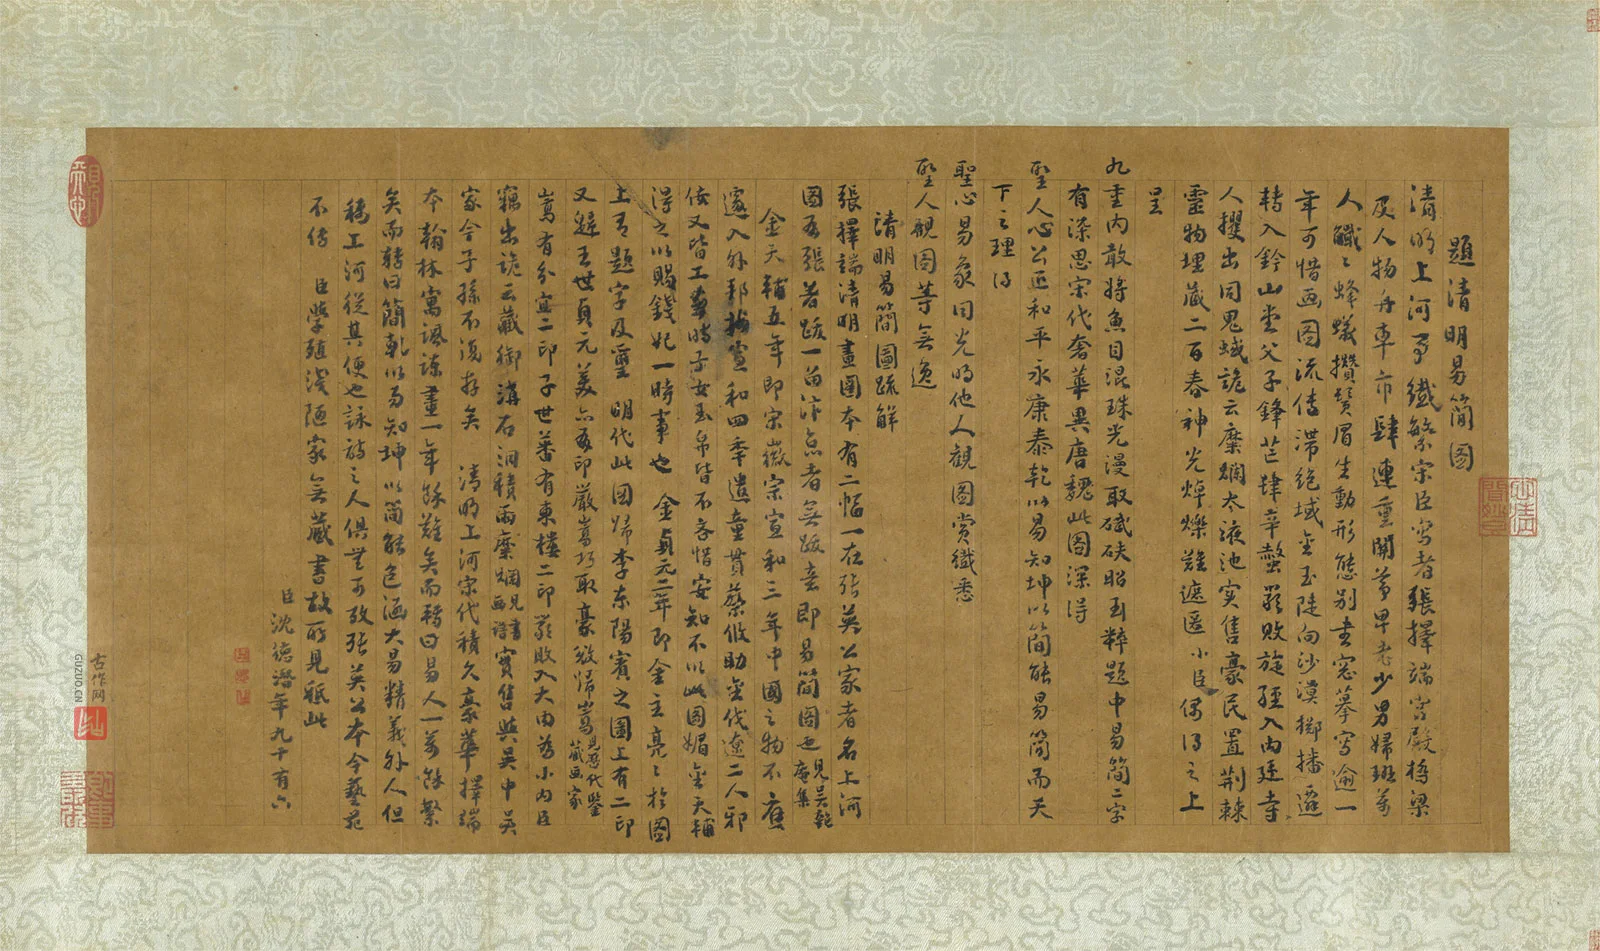 題清明易簡圖
清明上河予纖繁宋臣寫者張擇端宫殿橋梁
及人物舟車市肆連重關尊卑老少男婦班萬
人巇巇蜂蟻攢鬚眉生動形態別晝窓摹寫逾一
年可惜画圖流傳滯絶域金玉陡向沙漠擲播遷
轉入鈐山堂父子鋒芒肆辛螫嚴敗旋經入内廷寺
人攫出同鬼蜮詭云糜爛太液池实售豪民置荆棘
靈物埋藏二百春神光焯爍難遮匿小臣偶得之上
呈
九重内敢將魚目混珠光漫取碔砆昭玉粹題中易簡二字
有深思宋代奢華異唐魏此圖深得
聖人心公正和平永康泰乾以易知坤以簡能易簡而天
下之理得
聖心易象同光明他人觀圖賞纖悉
聖人觀圖等無逸
清明易簡圖疏解
張擇端清明畫圖本有二幅一在張英公家者名上河
圖有張著跋一留汴京者無跋意即易簡圖也見吴乾庵集
金天輔五年即宋徽宗宣和三年中國之物不應
遽入外邦按宣和四季遣童貫蔡攸助金伐遼二人邪
佞又皆工畫時子女玉帛皆不吝惜安知不以此圖媚金天輔
得之以賜錢妃一時事也 金貞元二年即金主亮亮於圖
上有題字及璽 明代此圖歸李東陽賓之圖上有二印
又遞王世貞元美亦有印嚴嵩巧取豪發歸嵩見歷代鑒藏画家
嵩有分宜二印子世蕃有東樓二印嚴敗入大内为小内臣
竊出詭云藏御溝石洞積雨糜爛見書画譜實售與吴中吴
家今子孫不復存矣 清明上河宋代積久豪華擇端
本翰林寓諷諫畫一年餘難矣而轉曰易人一萬餘繁
矣而轉曰簡乾以易知坤以簡能包涵大易精義外人但
稱工河從其便也詠詩之人俱無可攷張英公本今藝苑
不傳 臣學殖淺陋家無藏書故所見秪此
臣沈德潛年九十有六
古作网
GUZUO.CN